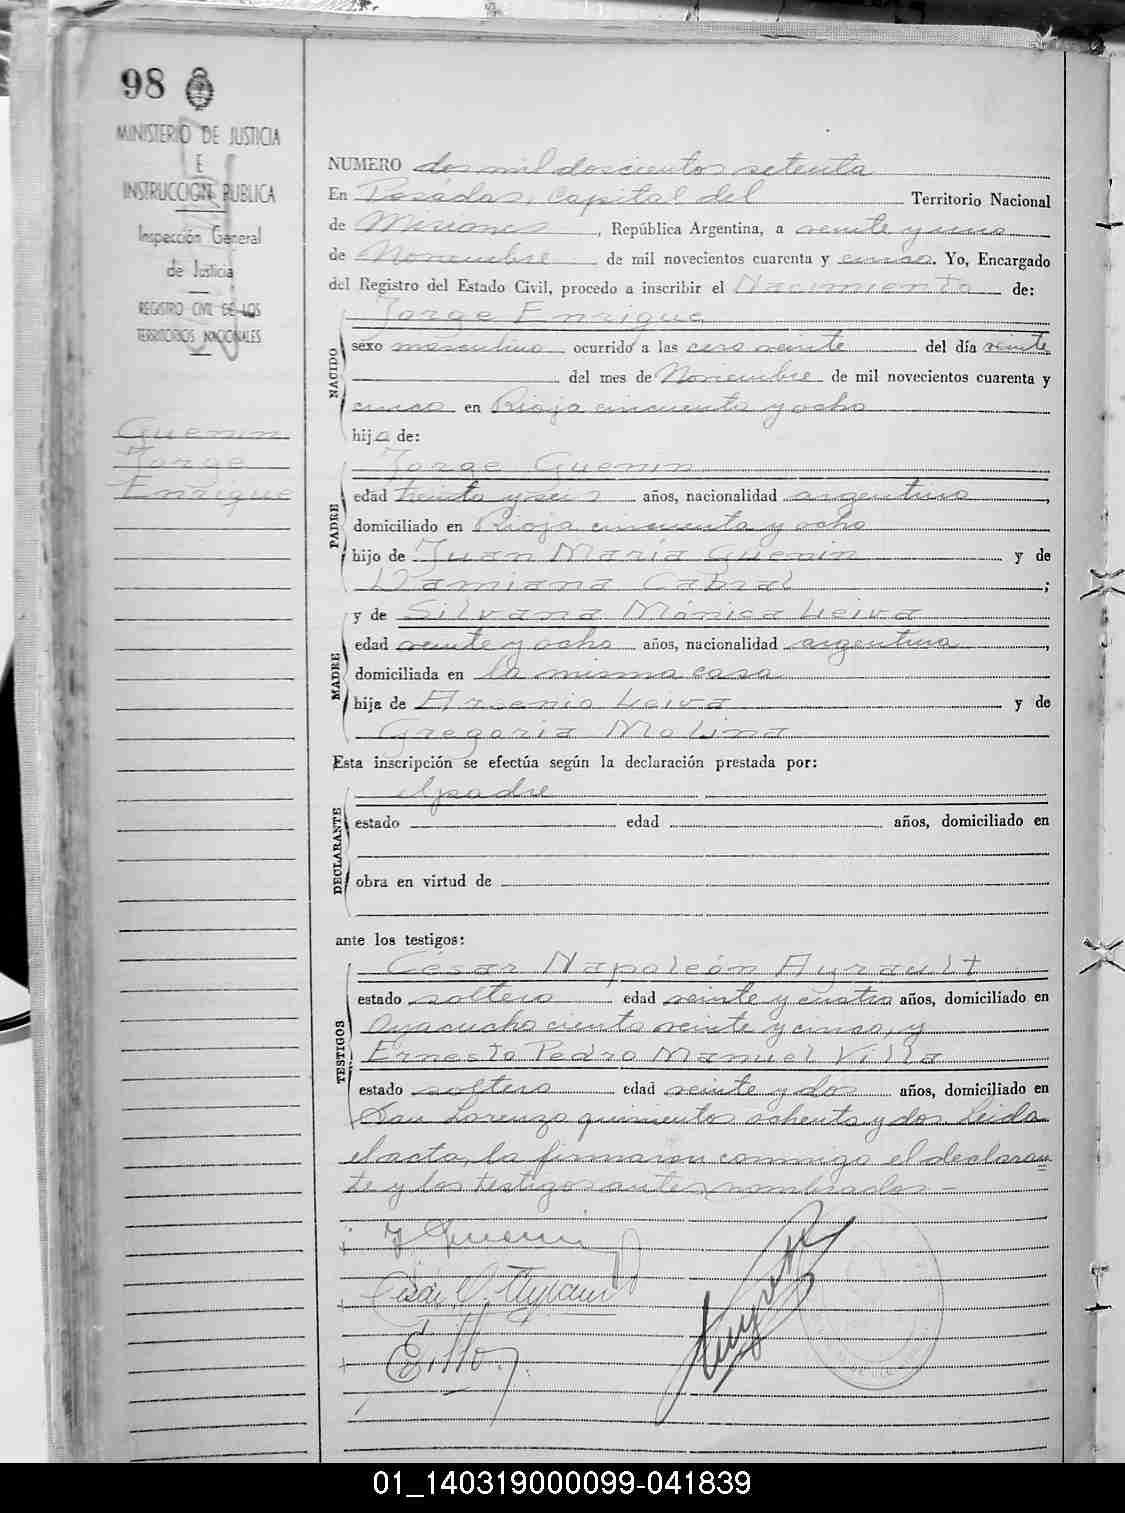 98
MINISTERIO DE JUSTICIA
E
INSTRUCCION PUBLICA
Inspección General
de Justicia
REGISTRO CIVIL DE LOS
TERRITORIOS NACIONALES
Guenin
Jorge
Enrique
NUMERO dos mil doscientos setenta
En Posadas, Capital del Territorio Nacional
de Misiones, República Argentina, a veinte y uno
de Noviembre de mil novecientos cuarenta y cinco. Yo, Encargado
del Registro del Estado Civil, procedo a inscribir el Nacimiento de:
Jorge Enrique
NACIDO
sexo masculino ocurrido a las cero veinte del día veinte
del mes de Noviembre de mil novecientos cuarenta y
cinco en Rioja cincuenta y ocho
hijo de:
Jorge Guenin
PADRE
edad treinta y seis años, nacionalidad argentino,
domiciliado en Rioja cincuenta y ocho
hijo de Juan María Guenin y de
Damiana Cabral;
y de Silvana Mónica Leiva
MADRE
edad veinte y ocho años, nacionalidad argentina,
domiciliada en la misma casa
hija de Arsenio Leiva y de
Gregoria Molina
Esta inscripción se efectúa según la declaración prestada por:
el padre
DECLARANTE
estado edad años, domiciliado en
obra en virtud de
ante los testigos:
César Napoleón Ayrault
TESTIGOS
estado soltero edad veinte y cuatro años, domiciliado en
Ayacucho ciento veinte y cinco, y
Ernesto Pedro Manuel Villa
estado soltero edad veinte y dos años, domiciliado en
San Lorenzo quinientos ochenta y dos Leida
el acta, la firmaron conmigo el declaran
te y los testigos antes nombrados.—
J Guenin
01_140319000099-041839